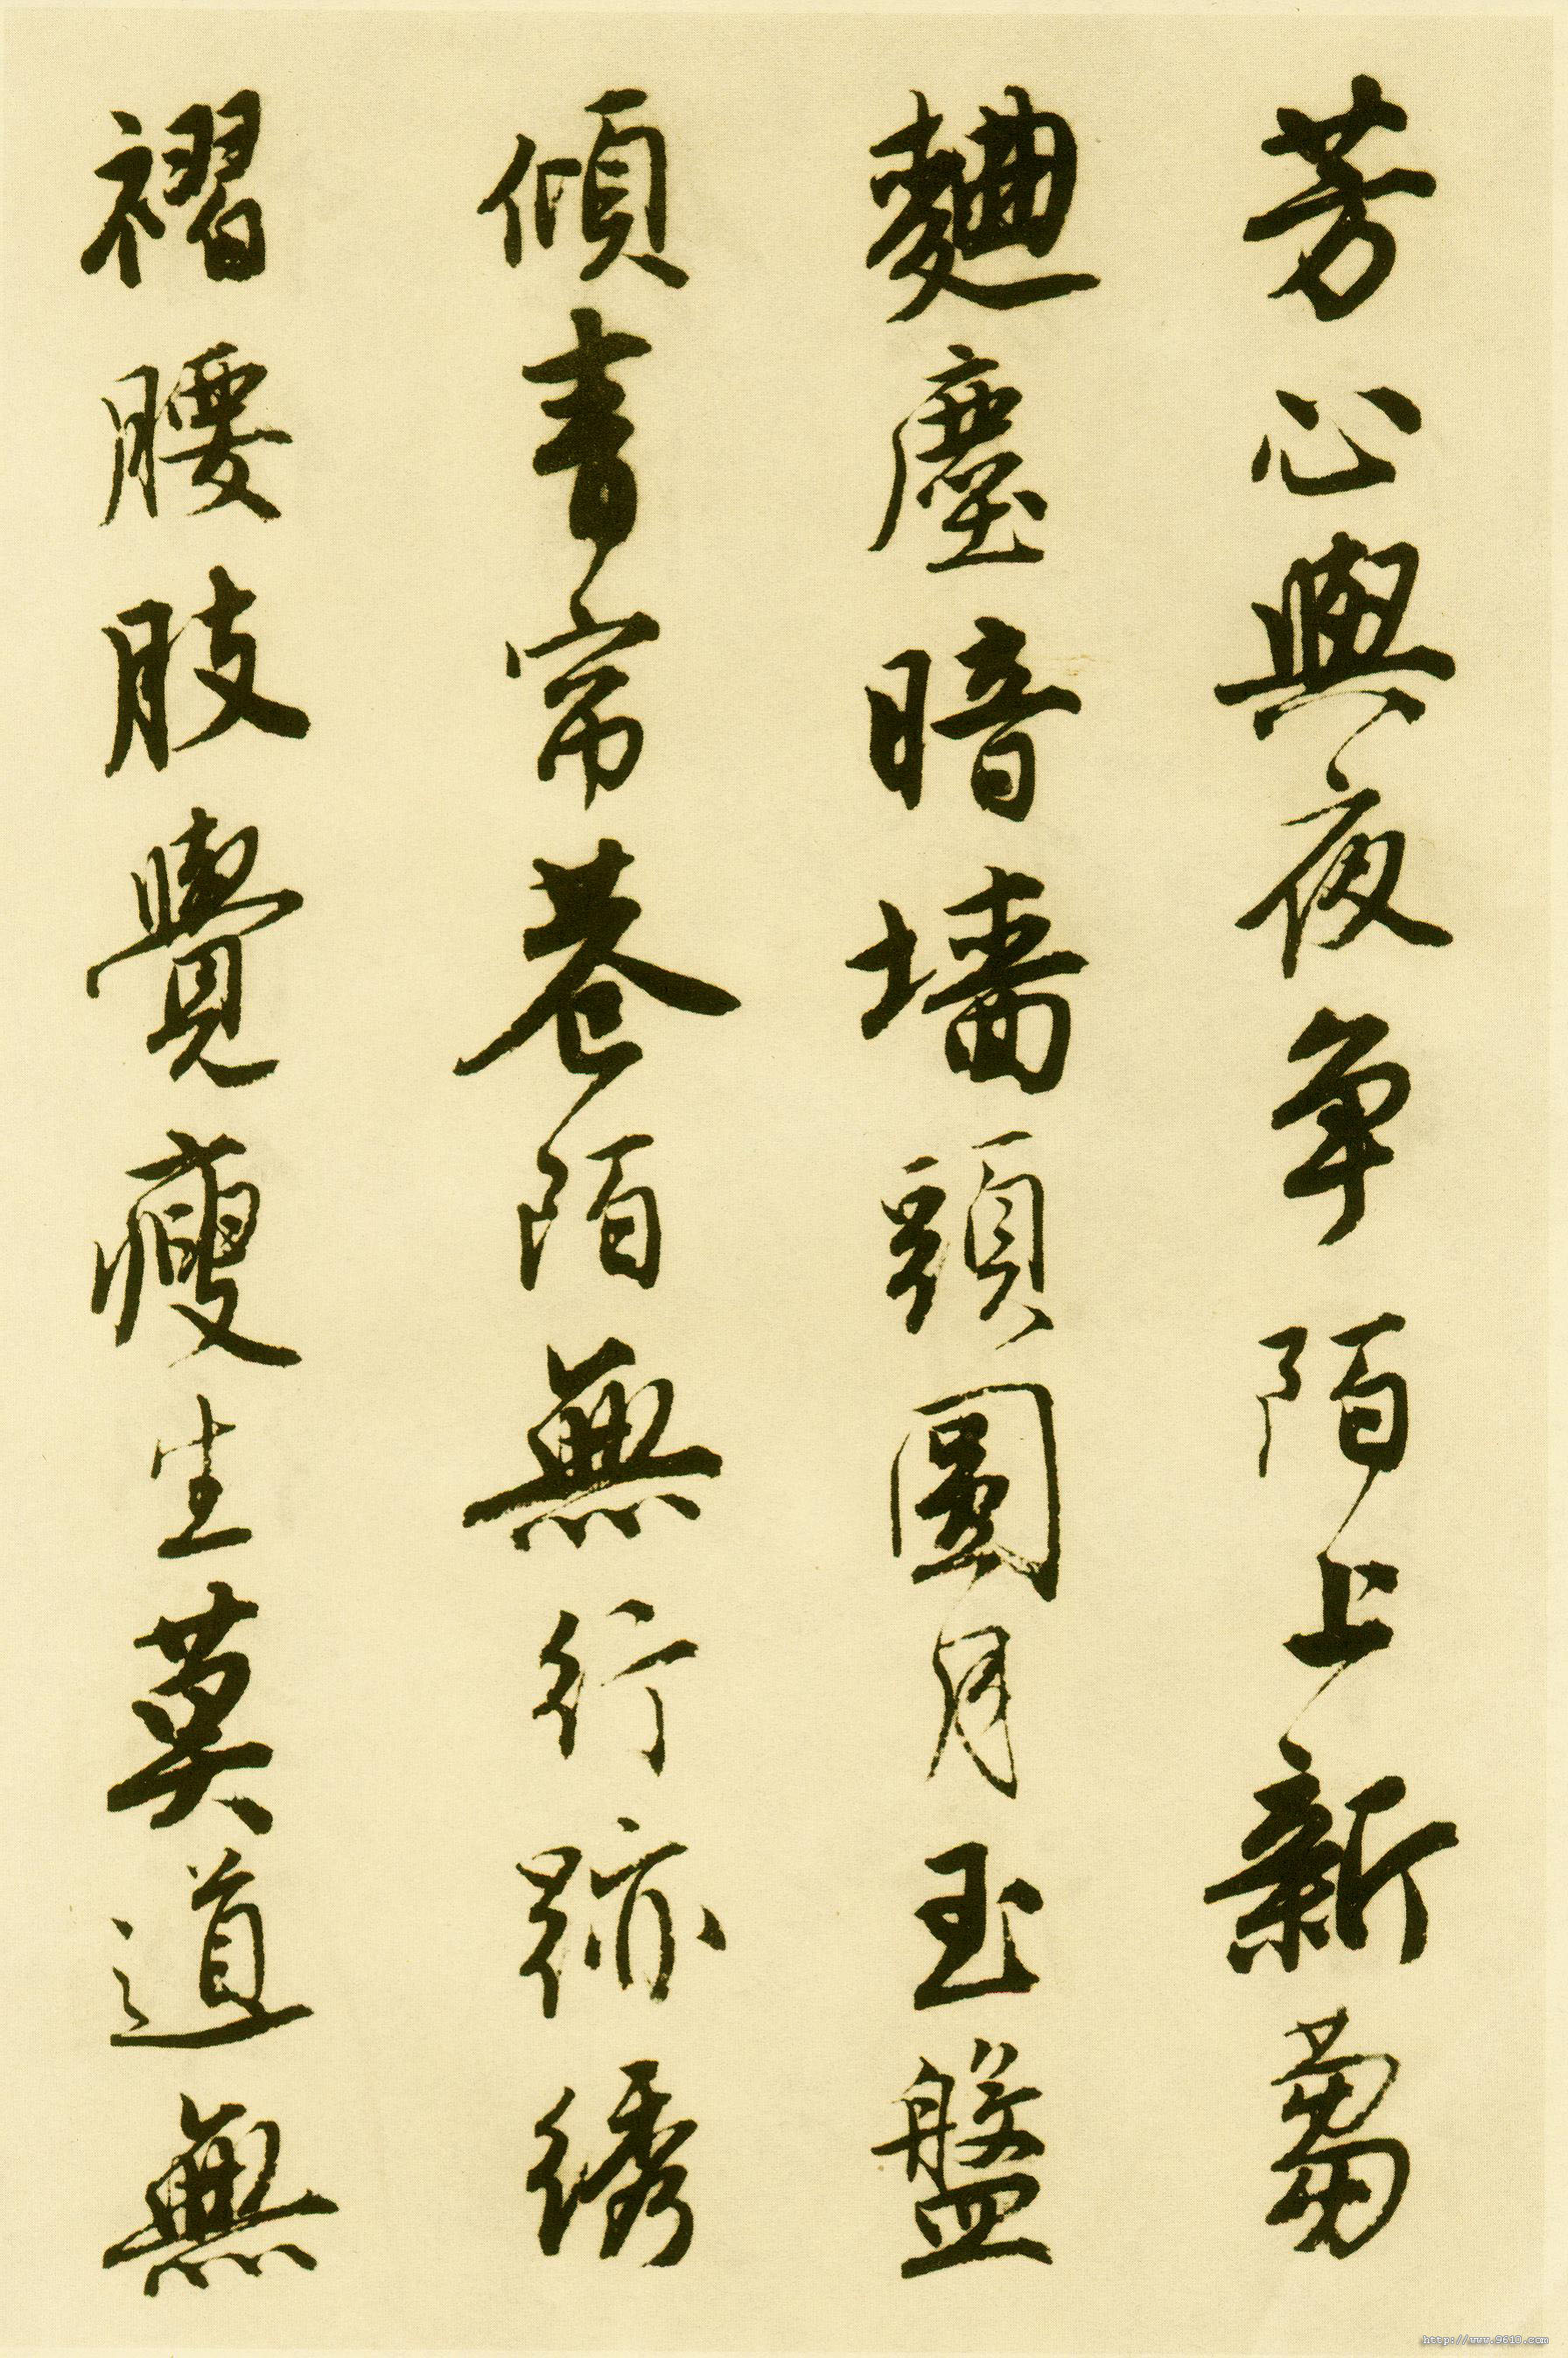 芳心與夜争陌上新蒭
麯塵暗墻頭圓月玉盤
傾青帘巷陌無行跡綉
褶腰肢覺瘦生莫道無
http://www.9610.com